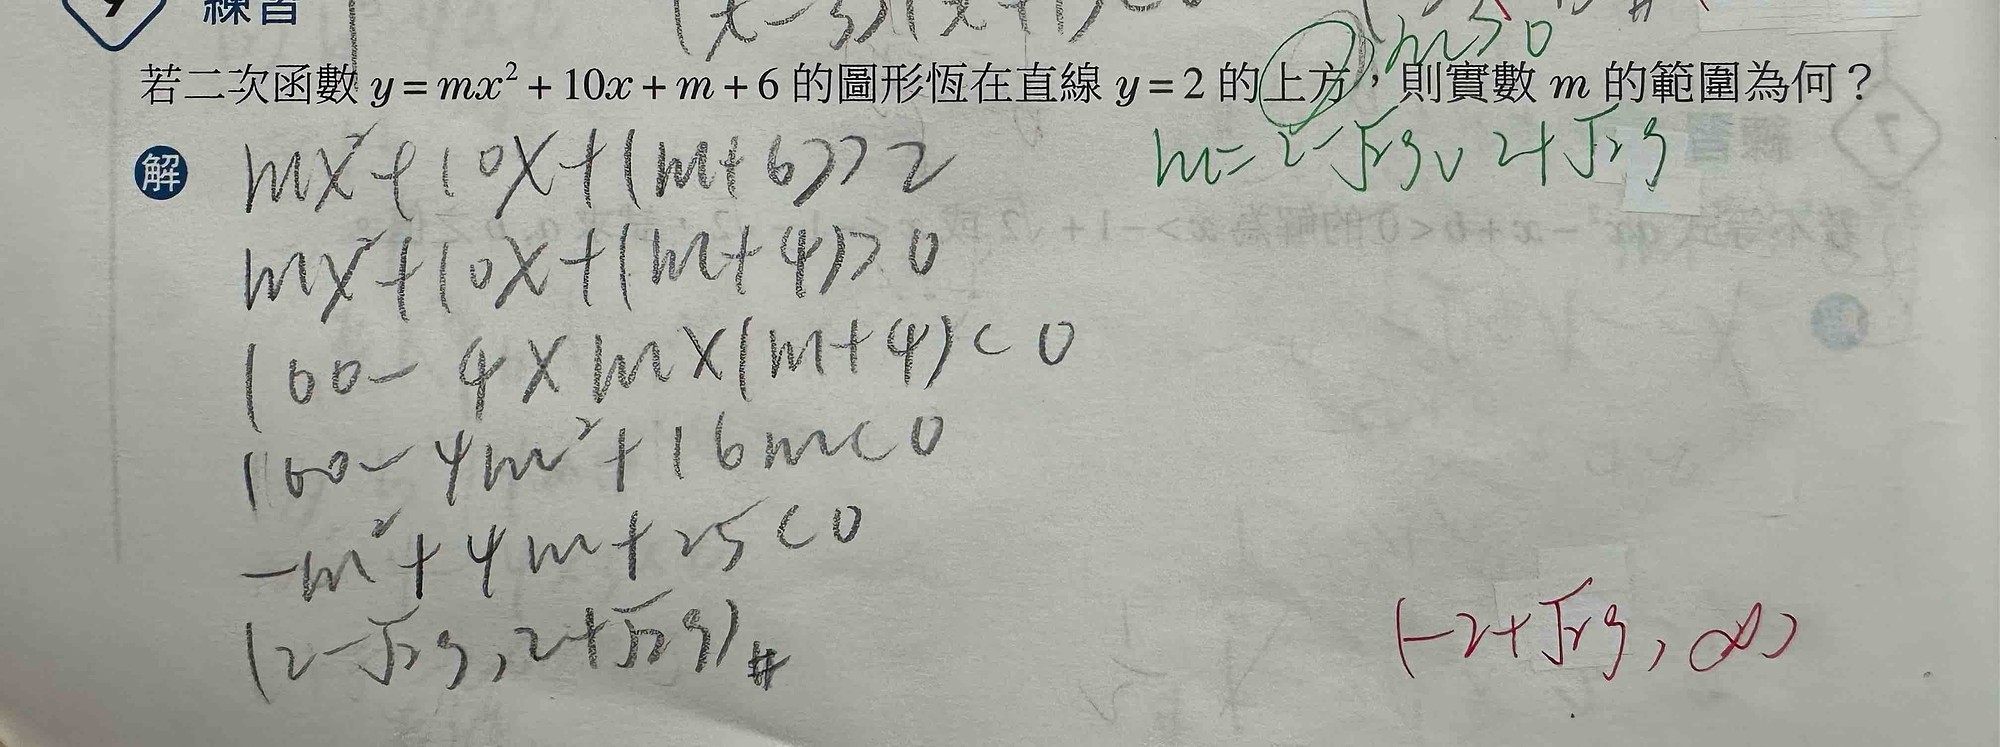 練習
m>0
若二次函數 y = mx² + 10x + m + 6 的圖形恆在直線 y = 2 的上方，則實數 m 的範圍為何？
解
mx²+10x+(m+6)>2
m=2-√29, 2+√29
mx²+10x+(m+4)>0
100-4×m×(m+4)<0
100-4m²+16m<0
-m²+4m+25<0
(2-√29, 2+√29)#
(-2+√29, ∞)